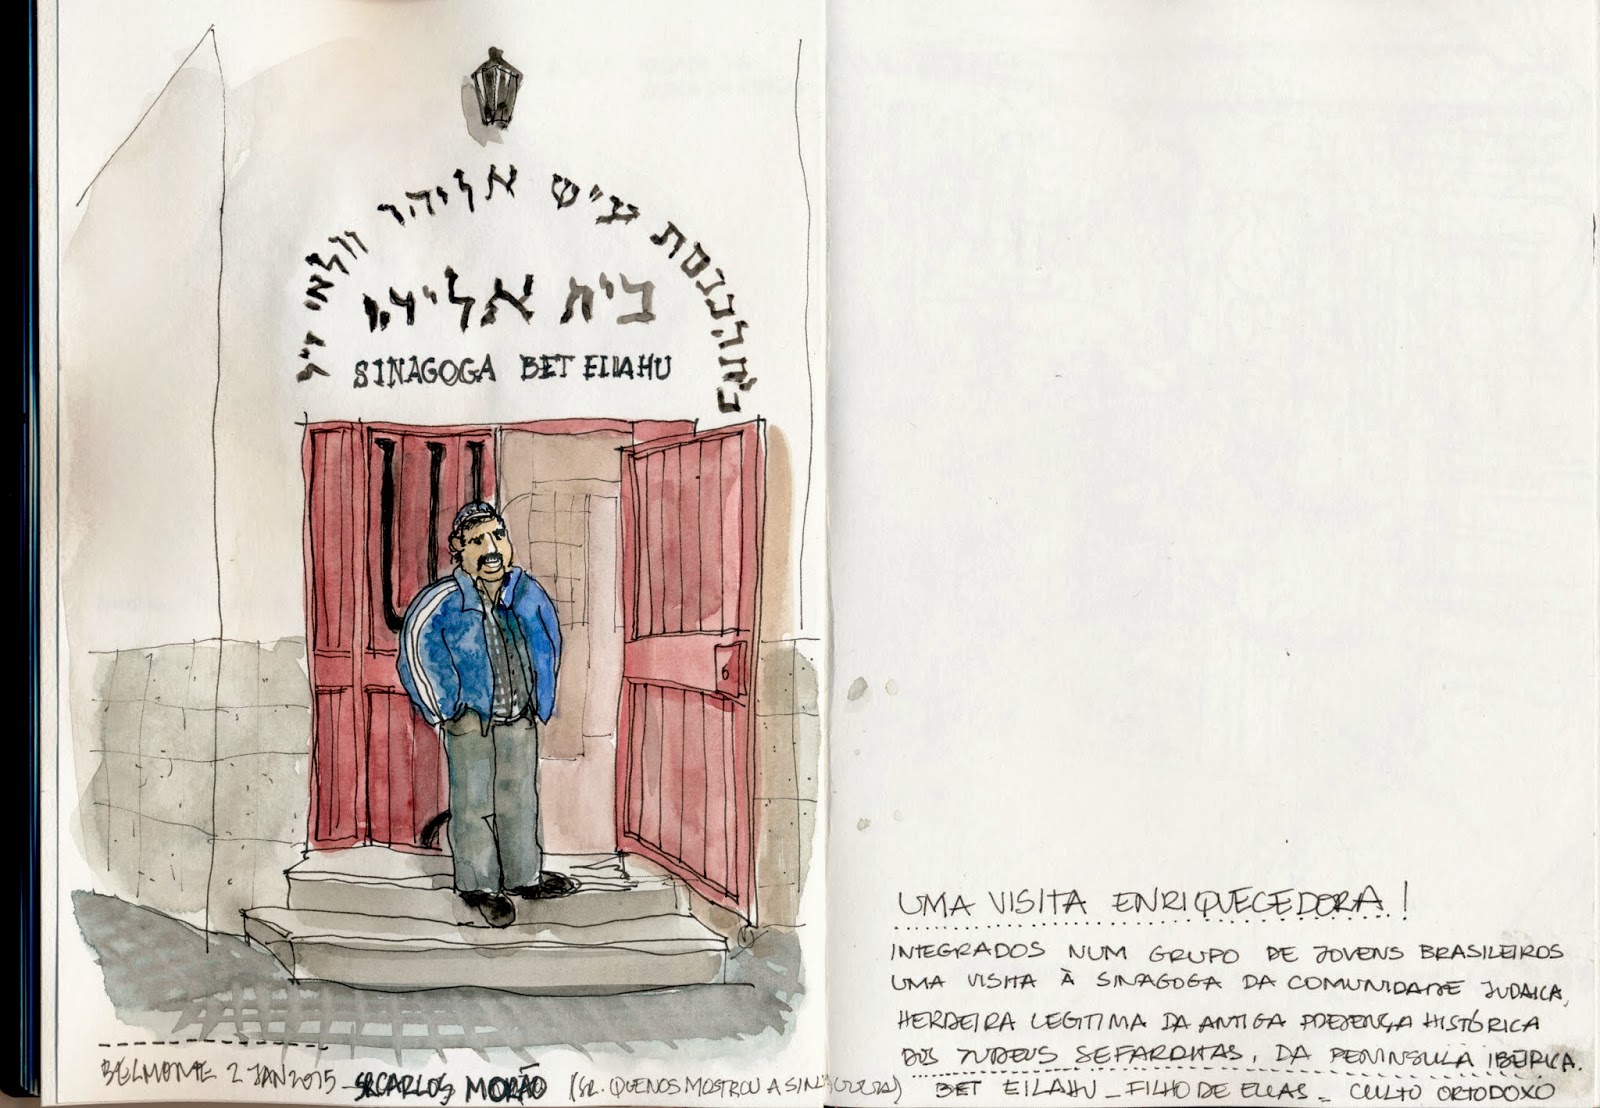 בית הכנסת ע"ש אליהו ז"ל
בית אליהו
SINAGOGA BET EILAHU
BELMONTE 2 JAN 2015 SR CARLOS MORÃO (SR. QUE NOS MOSTROU A SINAGOGA)
UMA VISITA ENRIQUECEDORA!
INTEGRADOS NUM GRUPO DE JOVENS BRASILEIROS
UMA VISITA À SINAGOGA DA COMUNIDADE JUDAICA,
HERDEIRA LEGITIMA DA ANTIGA PRESENÇA HISTÓRICA
DOS JUDEUS SEFARDITAS, DA PENINSULA IBÉRICA.
BET EILAHU _ FILHO DE ELIAS _ CULTO ORTODOXO